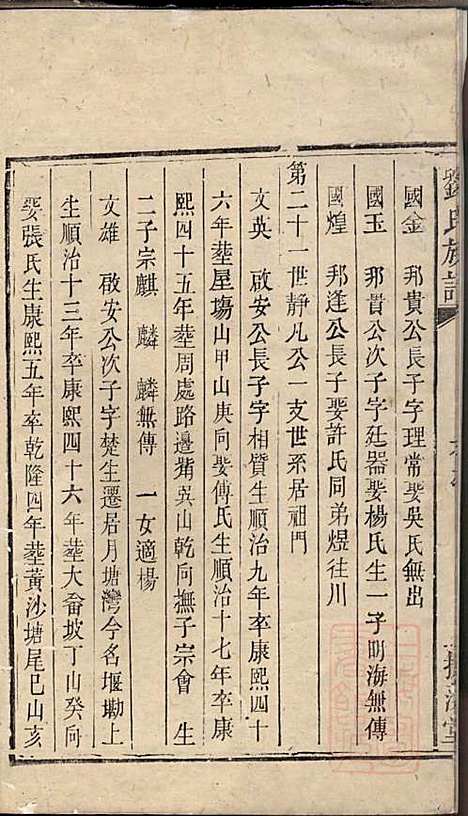 氏族譜
國金　邦貴公長子字理常娶吳氏無出
國玉　邦貴公次子字廷器娶楊氏生一子明海無傳
國煌　邦逢公長子娶許氏同弟煜往川
第二十一世靜凡公一支世系居祖門
文英　啟安公長子字相質生順治九年卒康熙四十
六年塟屋塲山甲山庚向娶傅氏生順治十七年卒康
熙四十五年塟周處路邉蒴英山乾向撫子宗會　生
二子宗麒　麟　麟無傳　一女適楊
文雄　啟安公次子字楚生遷居月塘灣今名堰墈上
生順治十三年卒康熙四十六年塟大畲坡丁山癸向
娶張氏生康熙五年卒乾隆四年塟黃沙塘尾巳山亥
堂